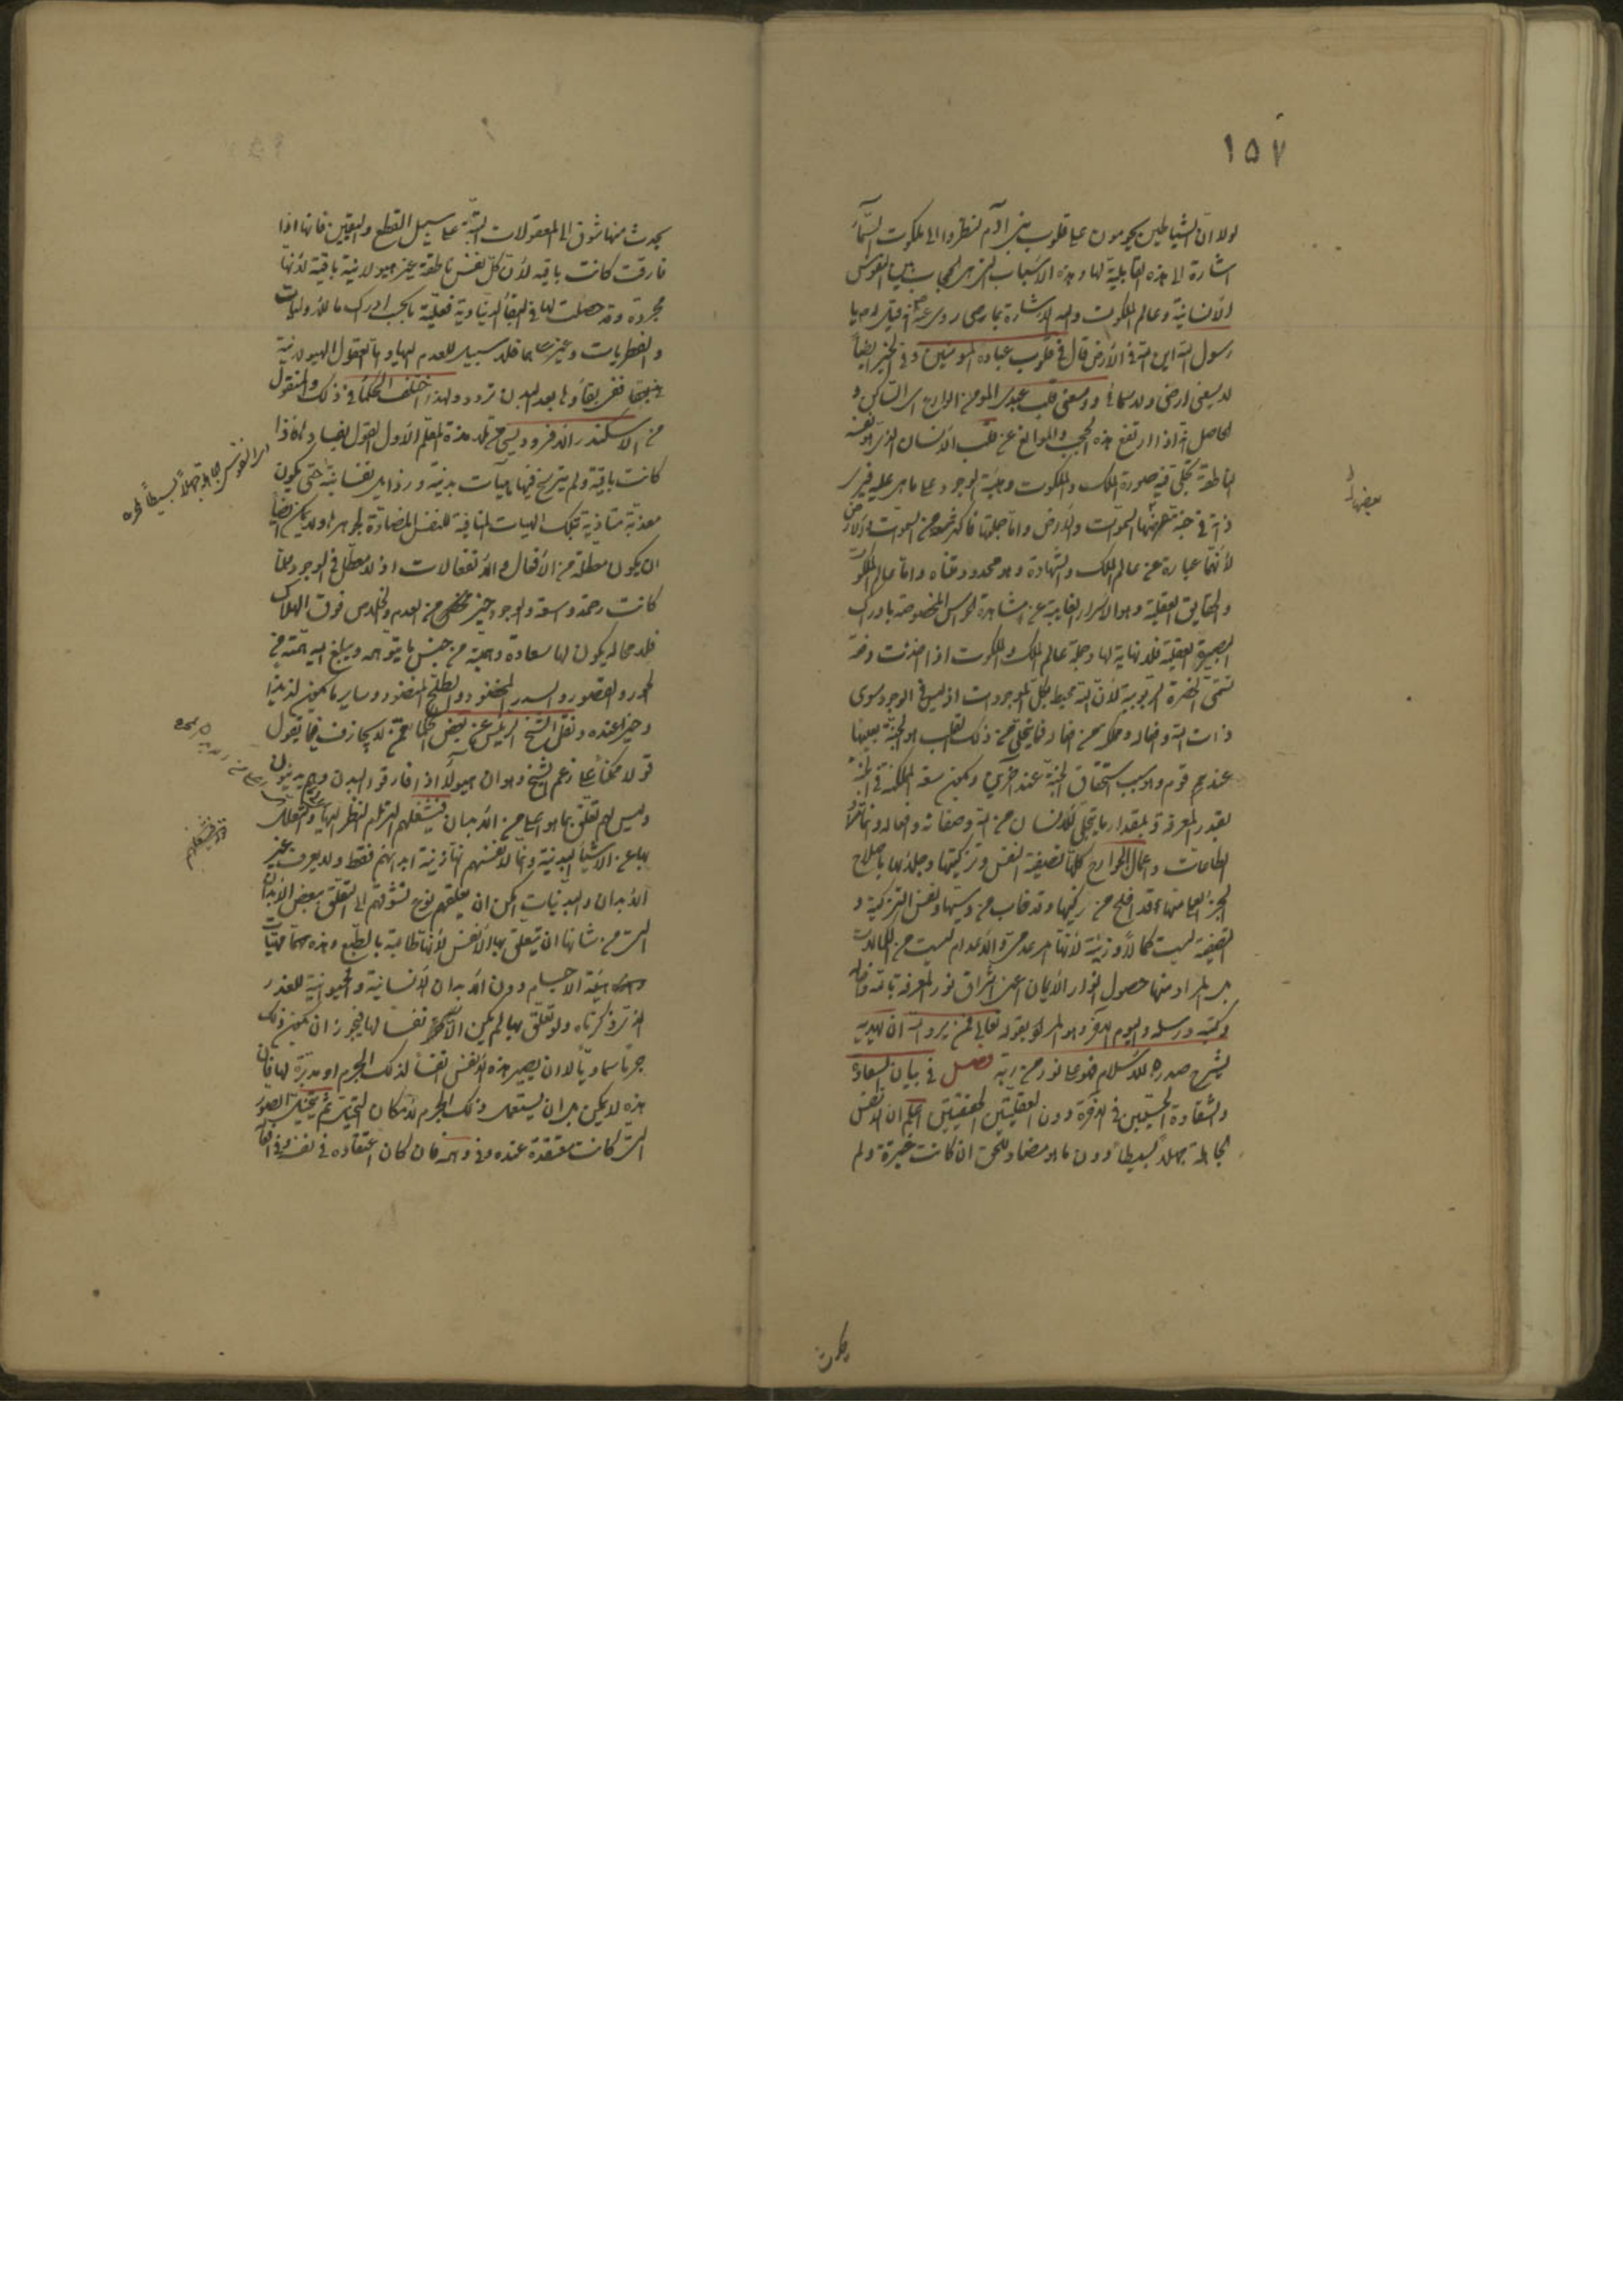 ١٥٧
لولا ان الشياطين يحومون على قلوب بنى آدم لنظروا الى ملكوت السماء
اشارة الى هذه القابلية لها وهذه الاسباب التى هى الحجاب بين النفوس
الانسانية وعالم الملكوت واليه الاشارة بما روى عنه قيل له يا
رسول الله اين الله فى الأرض قال فى قلوب عباده المؤمنين وفى الخبر ايضاً
لا يسعنى ارضى ولا سمائى ووسعنى قلب عبدى المؤمن الوادع اى الساكن و
الحاصل انه اذا ارتفع هذه الحجب والموانع عن قلب الانسان الذى هو نفسه
الناطقة تجلى فيه صورة الملك والملكوت وهيئة الوجود على ما هى عليه فيرى
ذاته فى جنة عرضها السموات والأرض واما جملتها فاكثر سعة من السموات والأرض
لأنها عبارة عن عالم الملك والشهادة وهو محدود متناه واما عالم الملكوت
والحقايق العقلية وهو الاسرار الغايبة عن مشاهدة الحواس المخصوصة بادراك
البصيرة العقلية فلا نهاية لها وجملة عالم الملك والملكوت اذا اخذت دفعة
تسمى الحضرة الربوبية لأن الله محيط بكل الموجودات اذ ليس فى الوجود سوى
ذات الله وافعاله ومملكته من افعاله فما يتجلى من ذلك للقلب هو الجنة بعينها
عند قوم وهو سبب استحقاق الجنة عند آخرين ويكون سعة المملكة فى الجنة
بقدر المعرفة وبمقدار ما يتجلى للانسان من الله وصفاته وافعاله وانما
الطاعات واعمال الجوارح كلها تصفية النفس وتزكيتها وجلاؤها باصلاح
الجزء العملى منها قد افلح من زكيها وقد خاب من دسيها ونفس التزكية و
التصفية ليست كمالاً لأنها امر عدمى والاعدام ليست من الكمالات
بل المراد منها حصول انوار الأيمان اعنى اشراق نور المعرفة بالله وافعاله
وكتبه ورسله واليوم الآخر وهو المراد بقوله تعالى فمن يرد الله ان يهديه
يشرح صدره للاسلام فهو على نور من ربه فصل فى بيان السعادة
والشقاوة الحسيتين فى الآخرة دون العقليتين الحقيقيتين اعلم ان النفس
الجاهلة جهلاً بسيطاً دون ما هو مضاد للحق ان كانت خيرة ولم
يحدث منها شوق الى المعقولات على سبيل القطع واليقين فانها اذا
فارقت كانت باقية لأن كل نفس ناطقة غير هيولانية باقية لأنها
مجردة وقد حصلت لها فى البقاء الدنياوية فعلية ما بحسب ادراك ما للأوليات
والفطريات وغيرها فلا سبيل للعدم اليها واما العقول الهيولانية
ففى بقاؤها بعد البدن تردد ولهذا اختلف الحكماء فى ذلك والمنقول
من الاسكندر الافروديسى من تلامذة المعلم الأول القول بفسادها واذا
كانت باقية ولم يترسخ فيها هيآت بدنية ورذايل نفسانية حتى يكون
معذبة متاذية بتلك الهيات المنافية للنفس المضادة لجوهرها ولا يمكن ايضاً
ان يكون معطلة من الأفعال والانفعالات اذ لا معطل فى الوجود ولما
كانت رحمة الله واسعة والوجود خير من العدم والخلاص فوق الهلاك
فلا محالة يكون لها سعادة وهمية من جنس ما يتوهمه ويبلغ اليه همته من
الحور والقصور والسدر المخضود والطلح المنضود وساير ما يكون لذيذا
وخيرا عنده ونقل الشيخ الرئيس عن بعض العلماء ممن لا يجازف فيما يقول
قولا ممكناً على زعم الشيخ وهو ان هؤلاء اذا فارقوا البدن وهم بدنيون
وليس لهم تعلق بما هو اعلى من الأبدان فيشغلهم التزام النظر اليها والتعلق
بها عن الاشياء البدنية وانما لانفسهم انها زينة ابدانهم فقط ولا يعرف غير
الأبدان والبدنيات امكن ان يعلقهم نوع تشوقهم الى التعلق ببعض الأبدان
التى من شانها ان يتعلق بها الأنفس لأنها طالبة بالطبع وهذه مهيات
هيئة الاجسام دون الأبدان الانسانية والحيوانية للعذر
الذى ذكرناه ولو تعلق بها لم يكن الا نفسا لها فيجوز ان يكون ذلك
جرما سماويا لا ان يصير هذه الأنفس انفساً لذلك الجرم او مدبرة لها فان
هذه لا يمكن بل ان يستعمل ذلك الجرم لامكان التخيل ثم يتخيل الصور
التى كانت معتقدة عنده وفى وهمه فان كان اعتقاده فى نفسه وفى افعاله